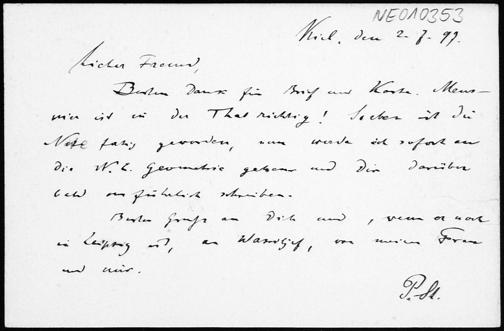 NEO10353
Kiel, den 2. 7. 99.
Lieber Freund,
Besten Dank für Brief und Karte. Meus-
nier ist in der That richtig! Soeben ist die
Note fertig geworden, nun werde ich sofort an
die N. E. Geometrie gehen und Dir darüber
bald ausführlich schreiben.
Besten Gruß an Dich und, wenn er noch
in Leipzig ist, an, von meiner Frau
und mir.
P. St.